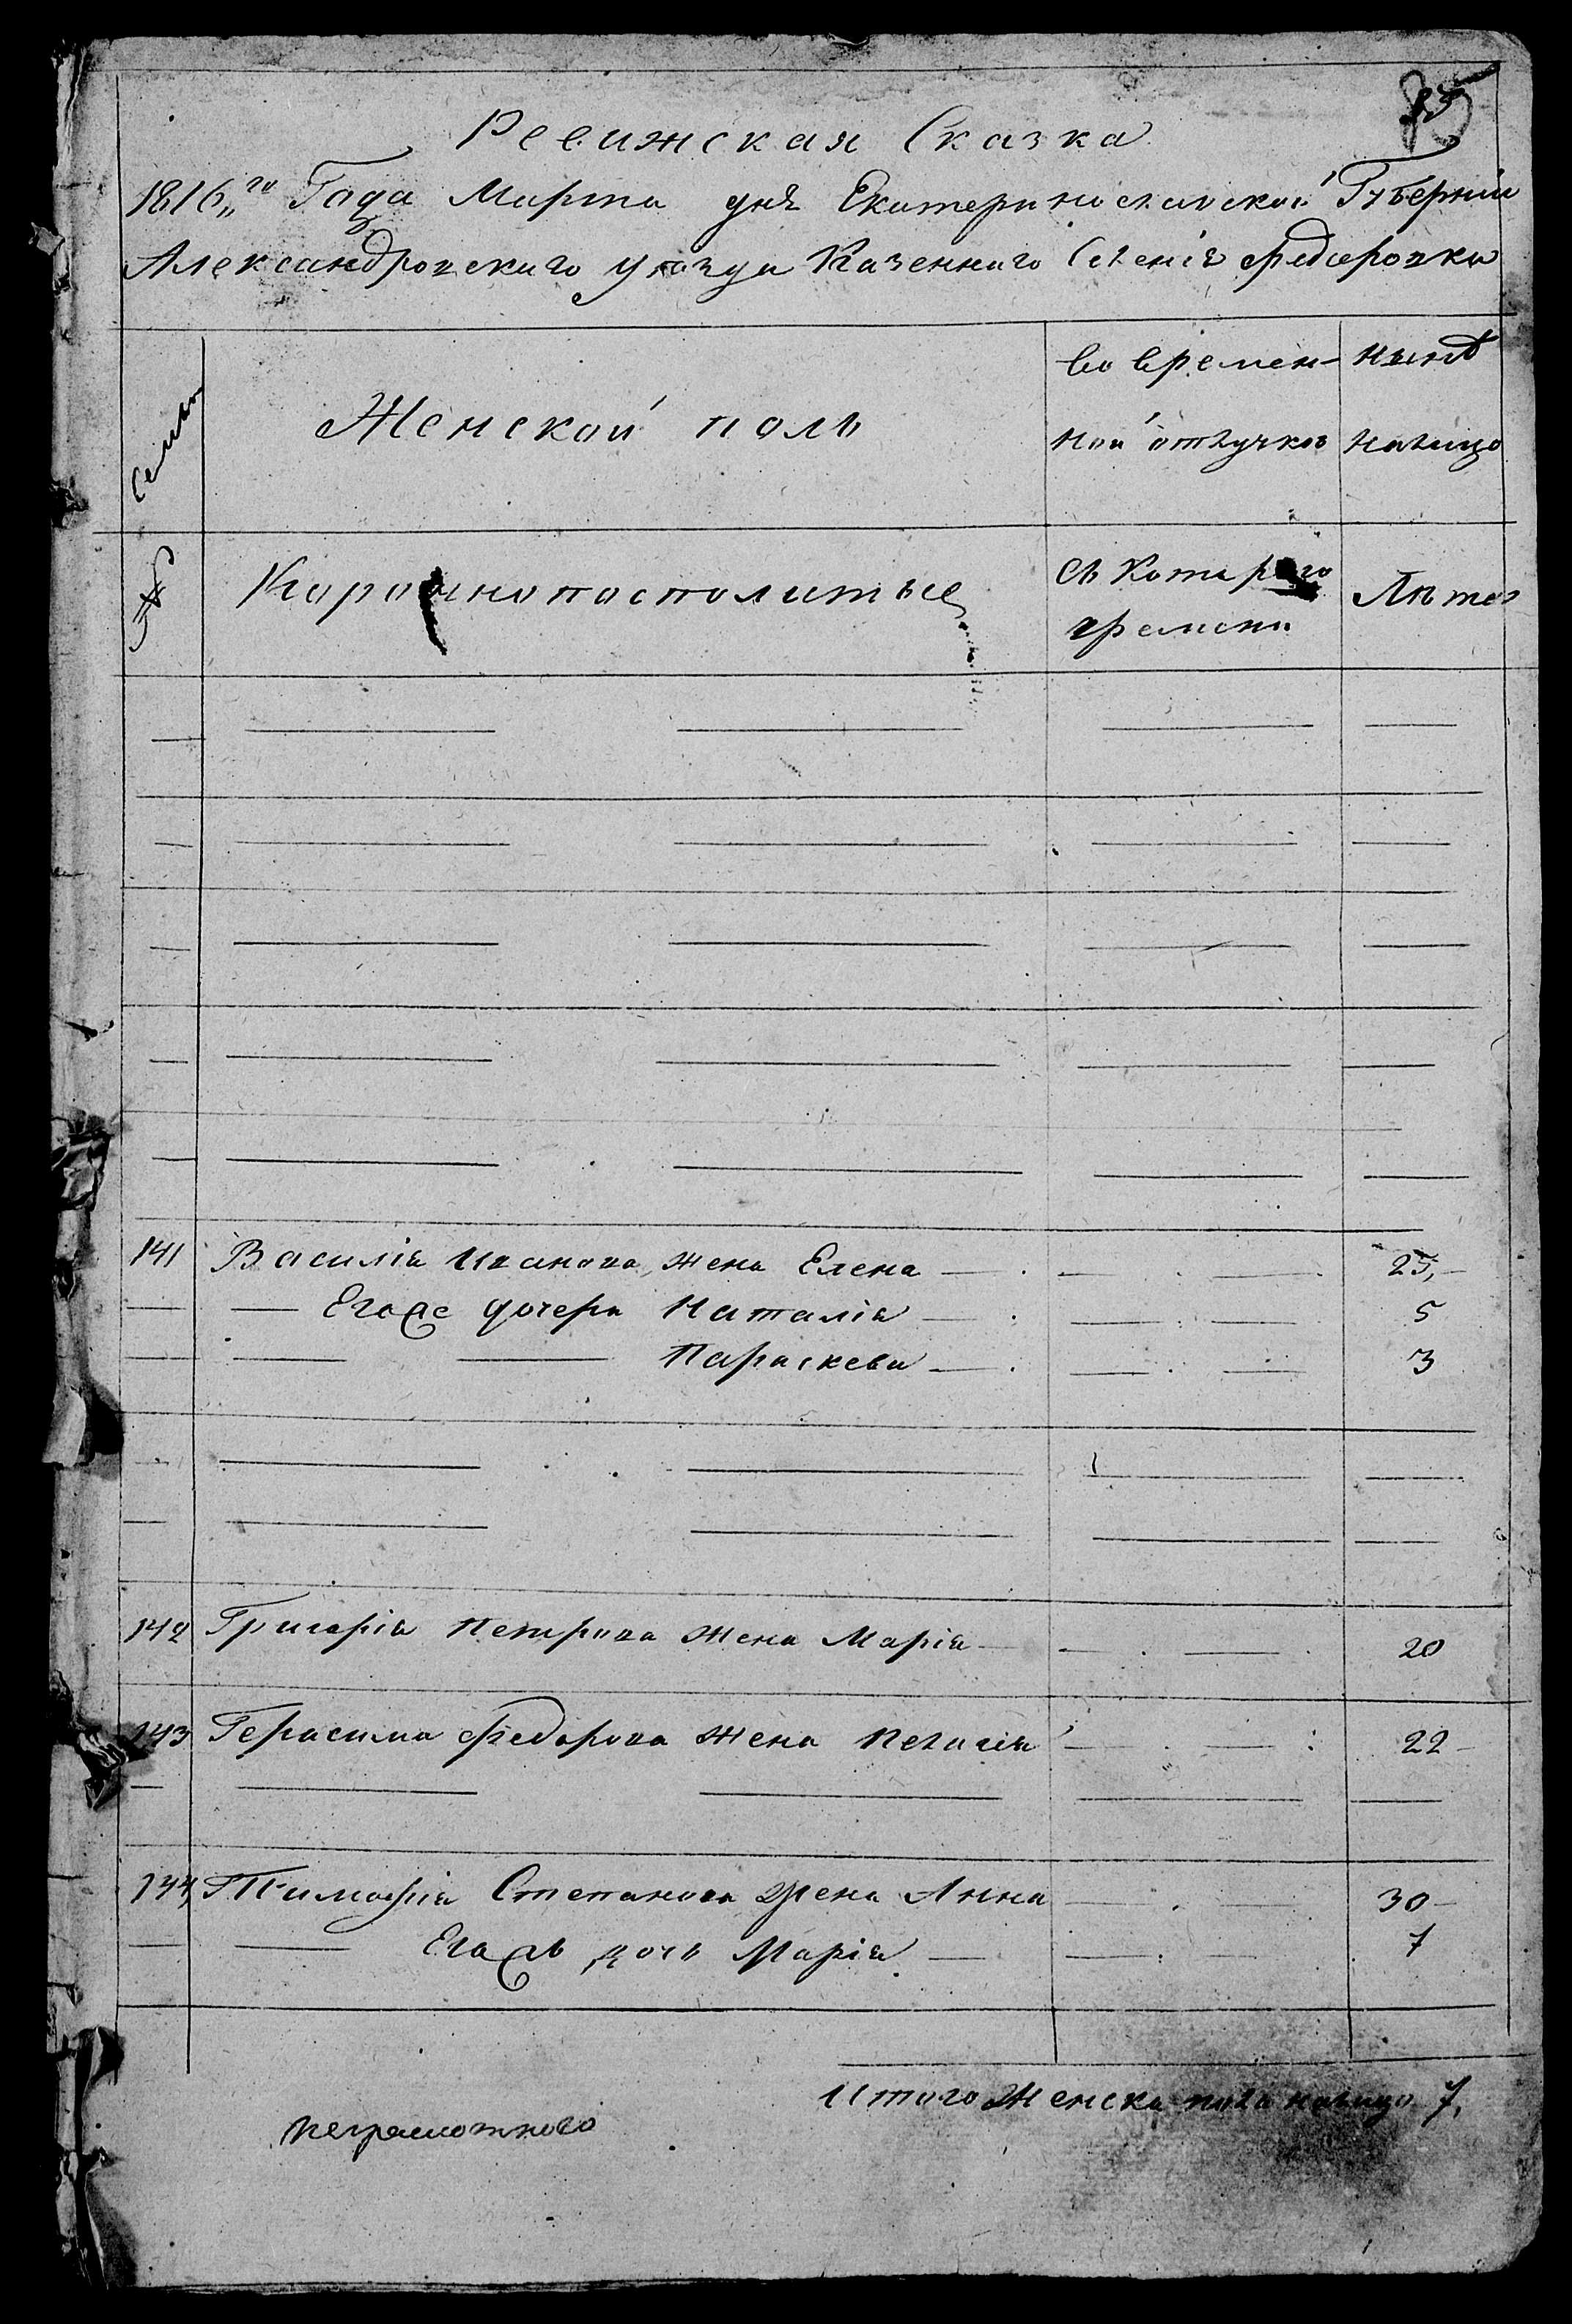 Ревижская Сказка
1816,,го Года Марта дня Екатеринославской Губернии
Александровского уезда Казенного Селенія Федоровки
Семьи
Женской полъ
во времен-
ной отлучкѣ
нынѣ
налицо
№
Коронно посполитые
съ Котораго
времени
Лѣта
141 Василія Иванова жена Елена 25,
Егоже дочери Наталія 5
Параскева 3
142 Григорія Петрова жена Марія 20
143 Герасима Федорова жена Пелагія 22
144, Тимофія Степанова жена Анна 30
Егожъ дочь Марія 7
Итого Женска пола налицо 7,